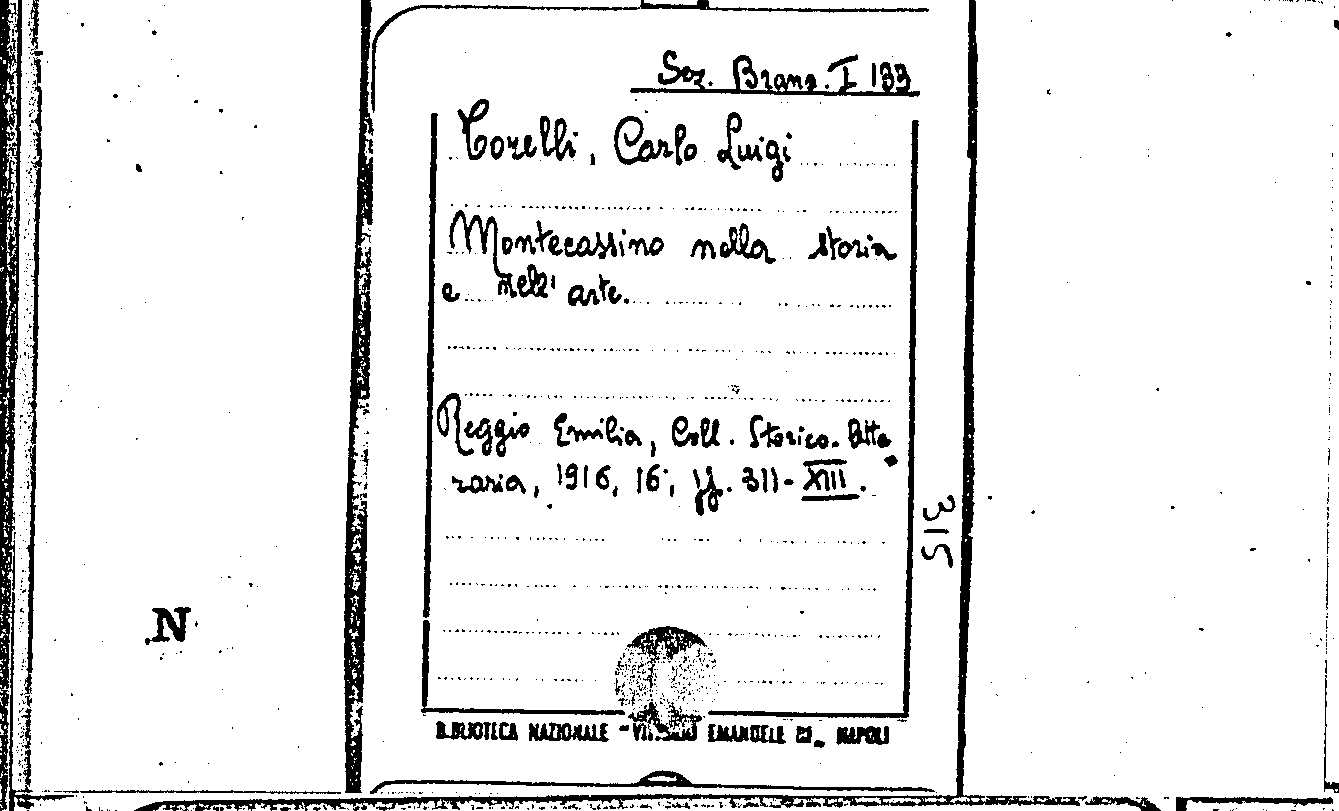 Sez. Branc. I 133
Torelli, Carlo Luigi
Montecassino nella storia
e nell' arte.
Reggio Emilia, Coll. Storico. Lette
raria, 1916, 16°, pp. 311-XIII.
315
N
BIBLIOTECA NAZIONALE - VITTORIO EMANUELE III - NAPOLI